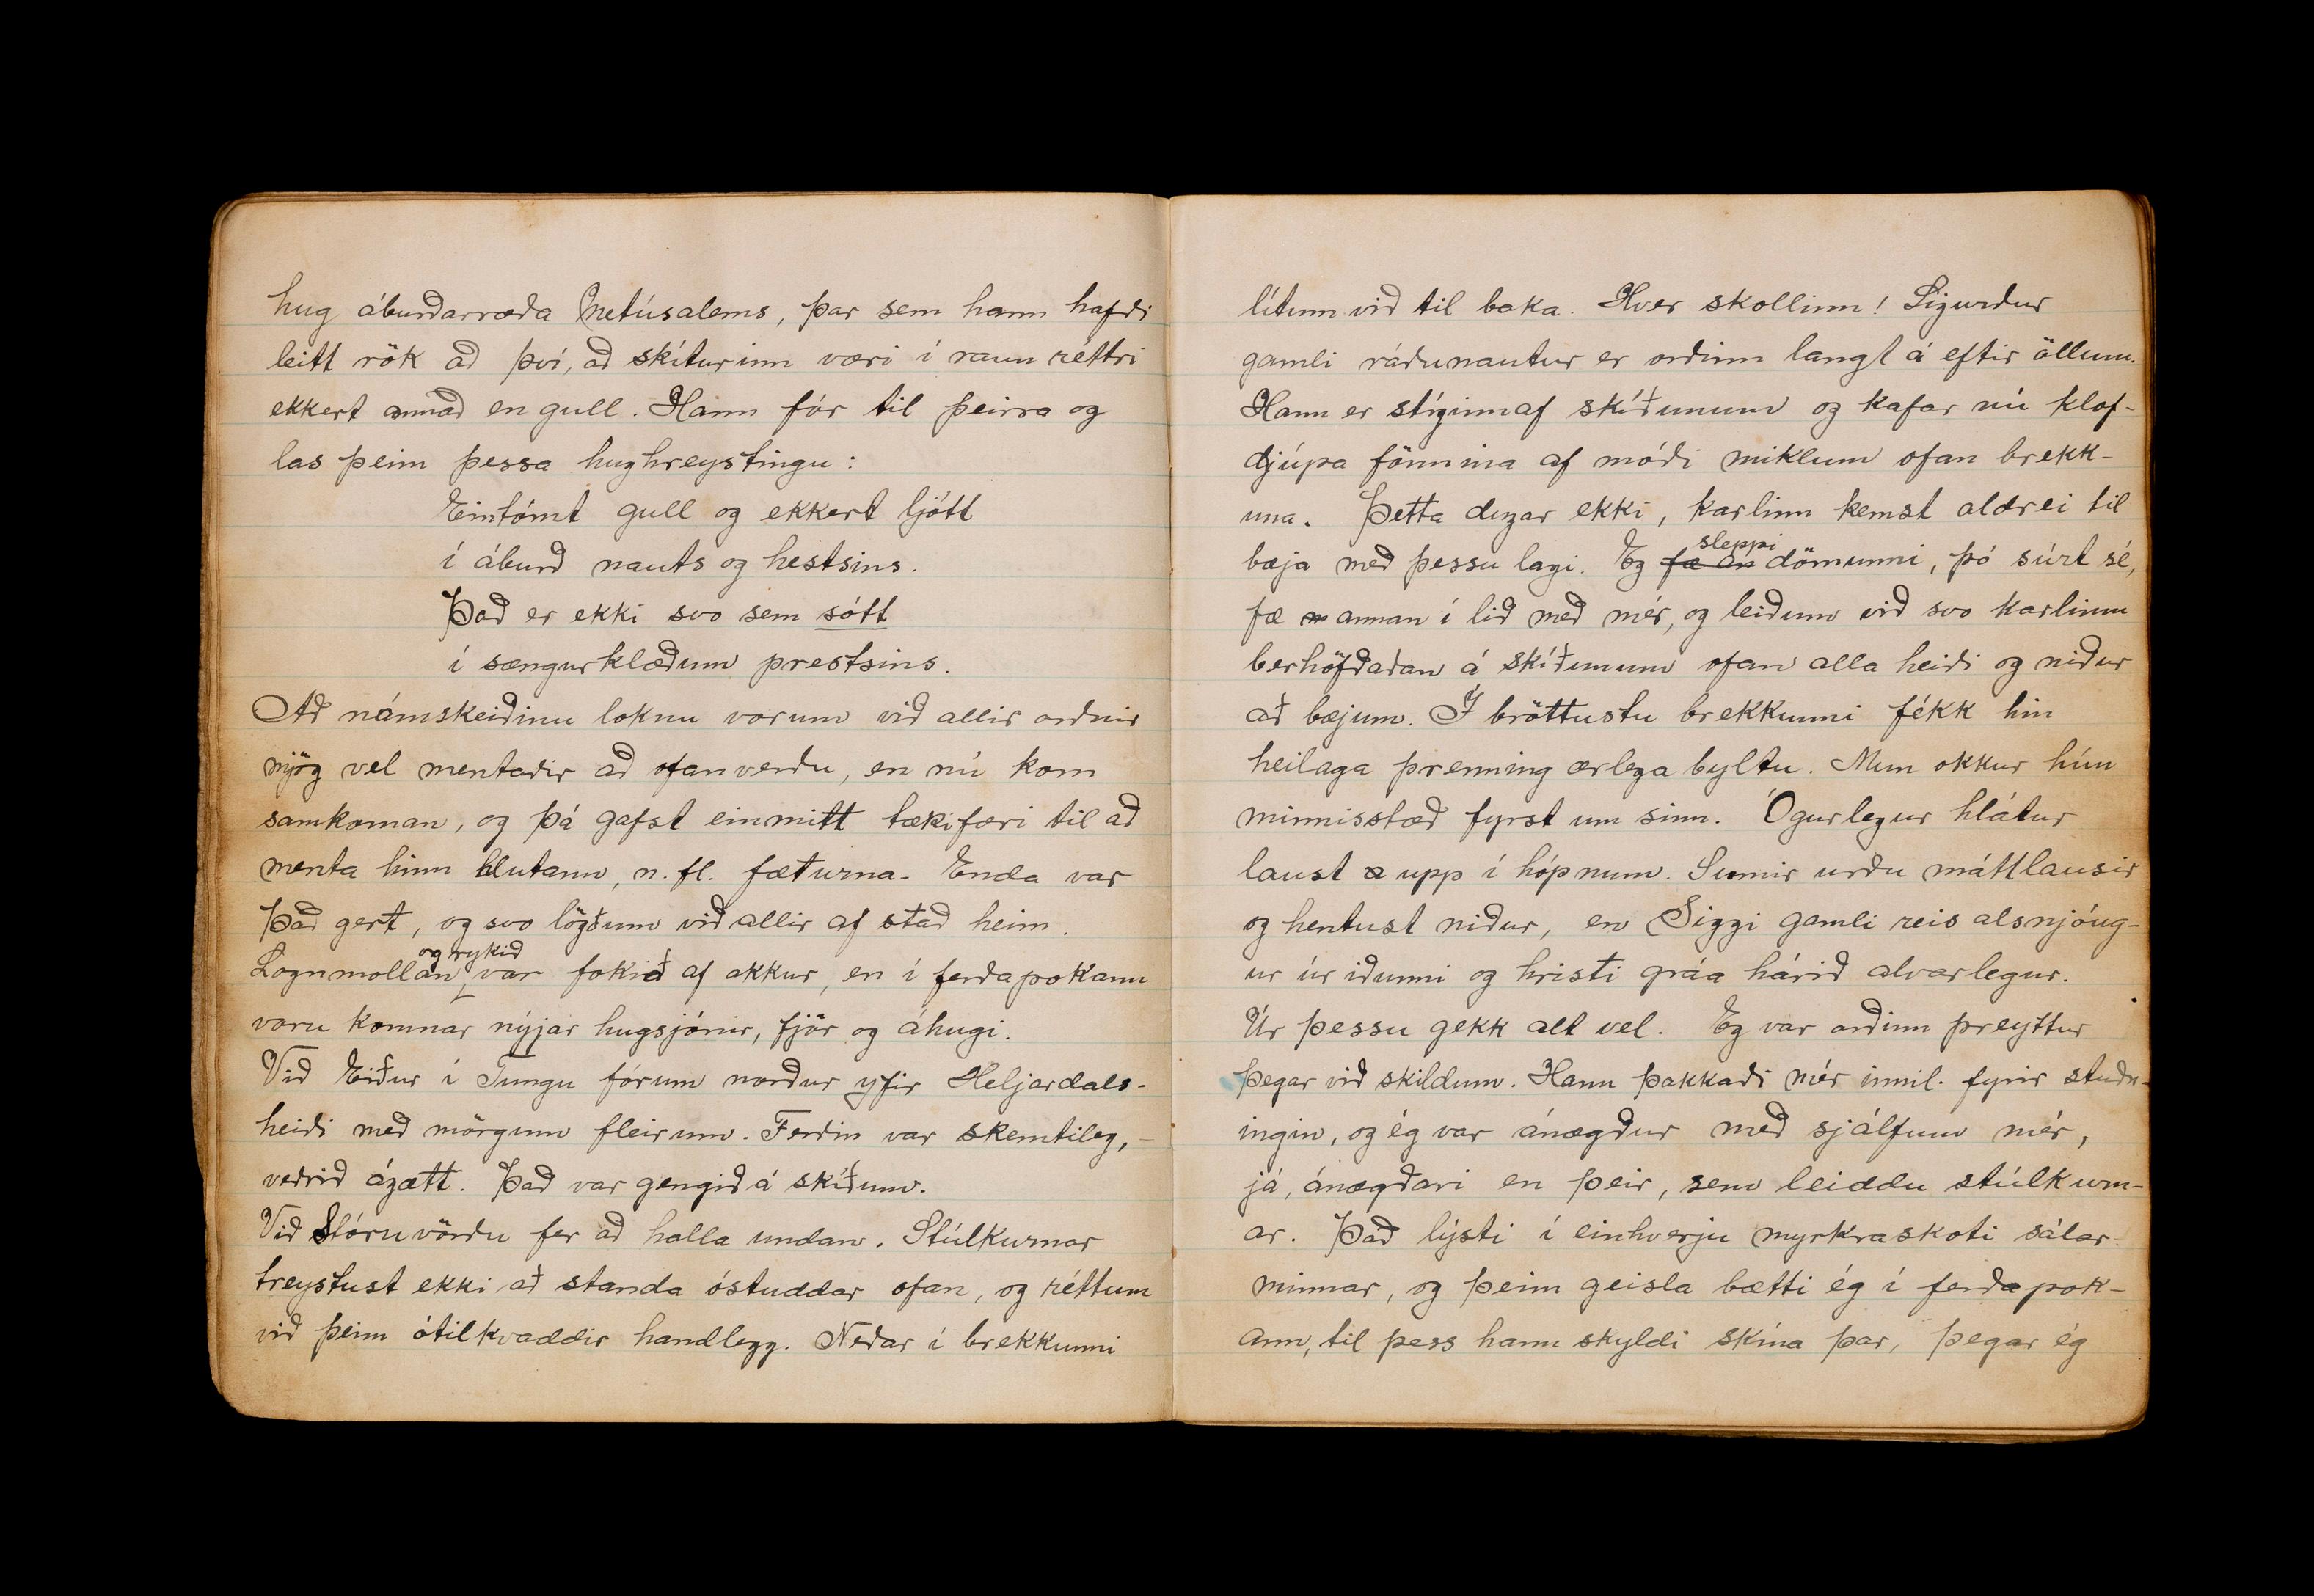 hug áburðarræða Metúsalems, þar sem hann hafði
leitt rök að því, að skíturinn væri í raun réttri
ekkert annað en gull. Hann fór til þeirra og
las þeim þessa hughreystingu:
Eintómt gull og ekkert ljótt
í áburð nauts og hestsins.
Það er ekki svo sem sótt
í sængurklæðum prestsins.
Að námskeiðinu loknu vorum við allir orðnir
mjög vel mentaðir að ofanverðu, en nú kom
samkoman, og þá gafst einmitt tækifæri til að
menta hinn hlutann, n. fl. fæturna. Enda var
það gert, og svo lögðum við allir af stað heim.
og rykið
Lognmollan var fokið af okkur, en í ferðapokann
voru komnar nýjar hugsjónir, fjör og áhugi.
Við Eiður í Tungu fórum norður yfir Heljardals-
heiði með mörgum fleirum. Ferðin var skemtileg,
veðrið ágætt. Það var gengið á skíðum.
Við Stóruvörðu fer að halla undan. Stúlkurnar
treystust ekki að standa óstuddar ofan, og réttum
við þeim ótilkvaddir handlegg. Neðar í brekkunni
lítum við til baka. Hver skollinn! Sigurður
gamli ráðunautur er orðinn langt á eftir öllum.
Hann er stíginn af skíðunum og kafar nú klof-
djúpa fönnina af móði miklum ofan brekk-
una. Þetta dugar ekki, karlinn kemst aldrei til
sleppi
bæja með þessu lagi. Eg fæ án dömunni, þó súrt sé,
fæ annan í lið með mér, og leiðum við svo karlinn
berhöfðaðan á skíðunum ofan alla heiði og niður
að bæjum. Í bröttustu brekkunni fékk hin
heilaga þrenning ærlega byltu. Mun okkur hún
minnisstæð fyrst um sinn. Ógurlegur hlátur
laust a upp í hópnum. Sumir urðu máttlausir
og hentust niður, en Siggi gamli reis alsnjóug-
ur úr iðunni og hristi gráa hárið alvarlegur.
Úr þessu gekk alt vel. Eg var orðinn þreyttur
þegar við skildum. Hann þakkaði mér innil. fyrir stuðn-
ingin, og ég var ánægður með sjálfum mér,
já, ánægðari en þeir, sem leiddu stúlkurn-
ar. Það lýsti í einhverju myrkraskoti sálar
minnar, og þeim geisla bætti ég í ferðapok-
ann, til þess hann skyldi skína þar, þegar ég